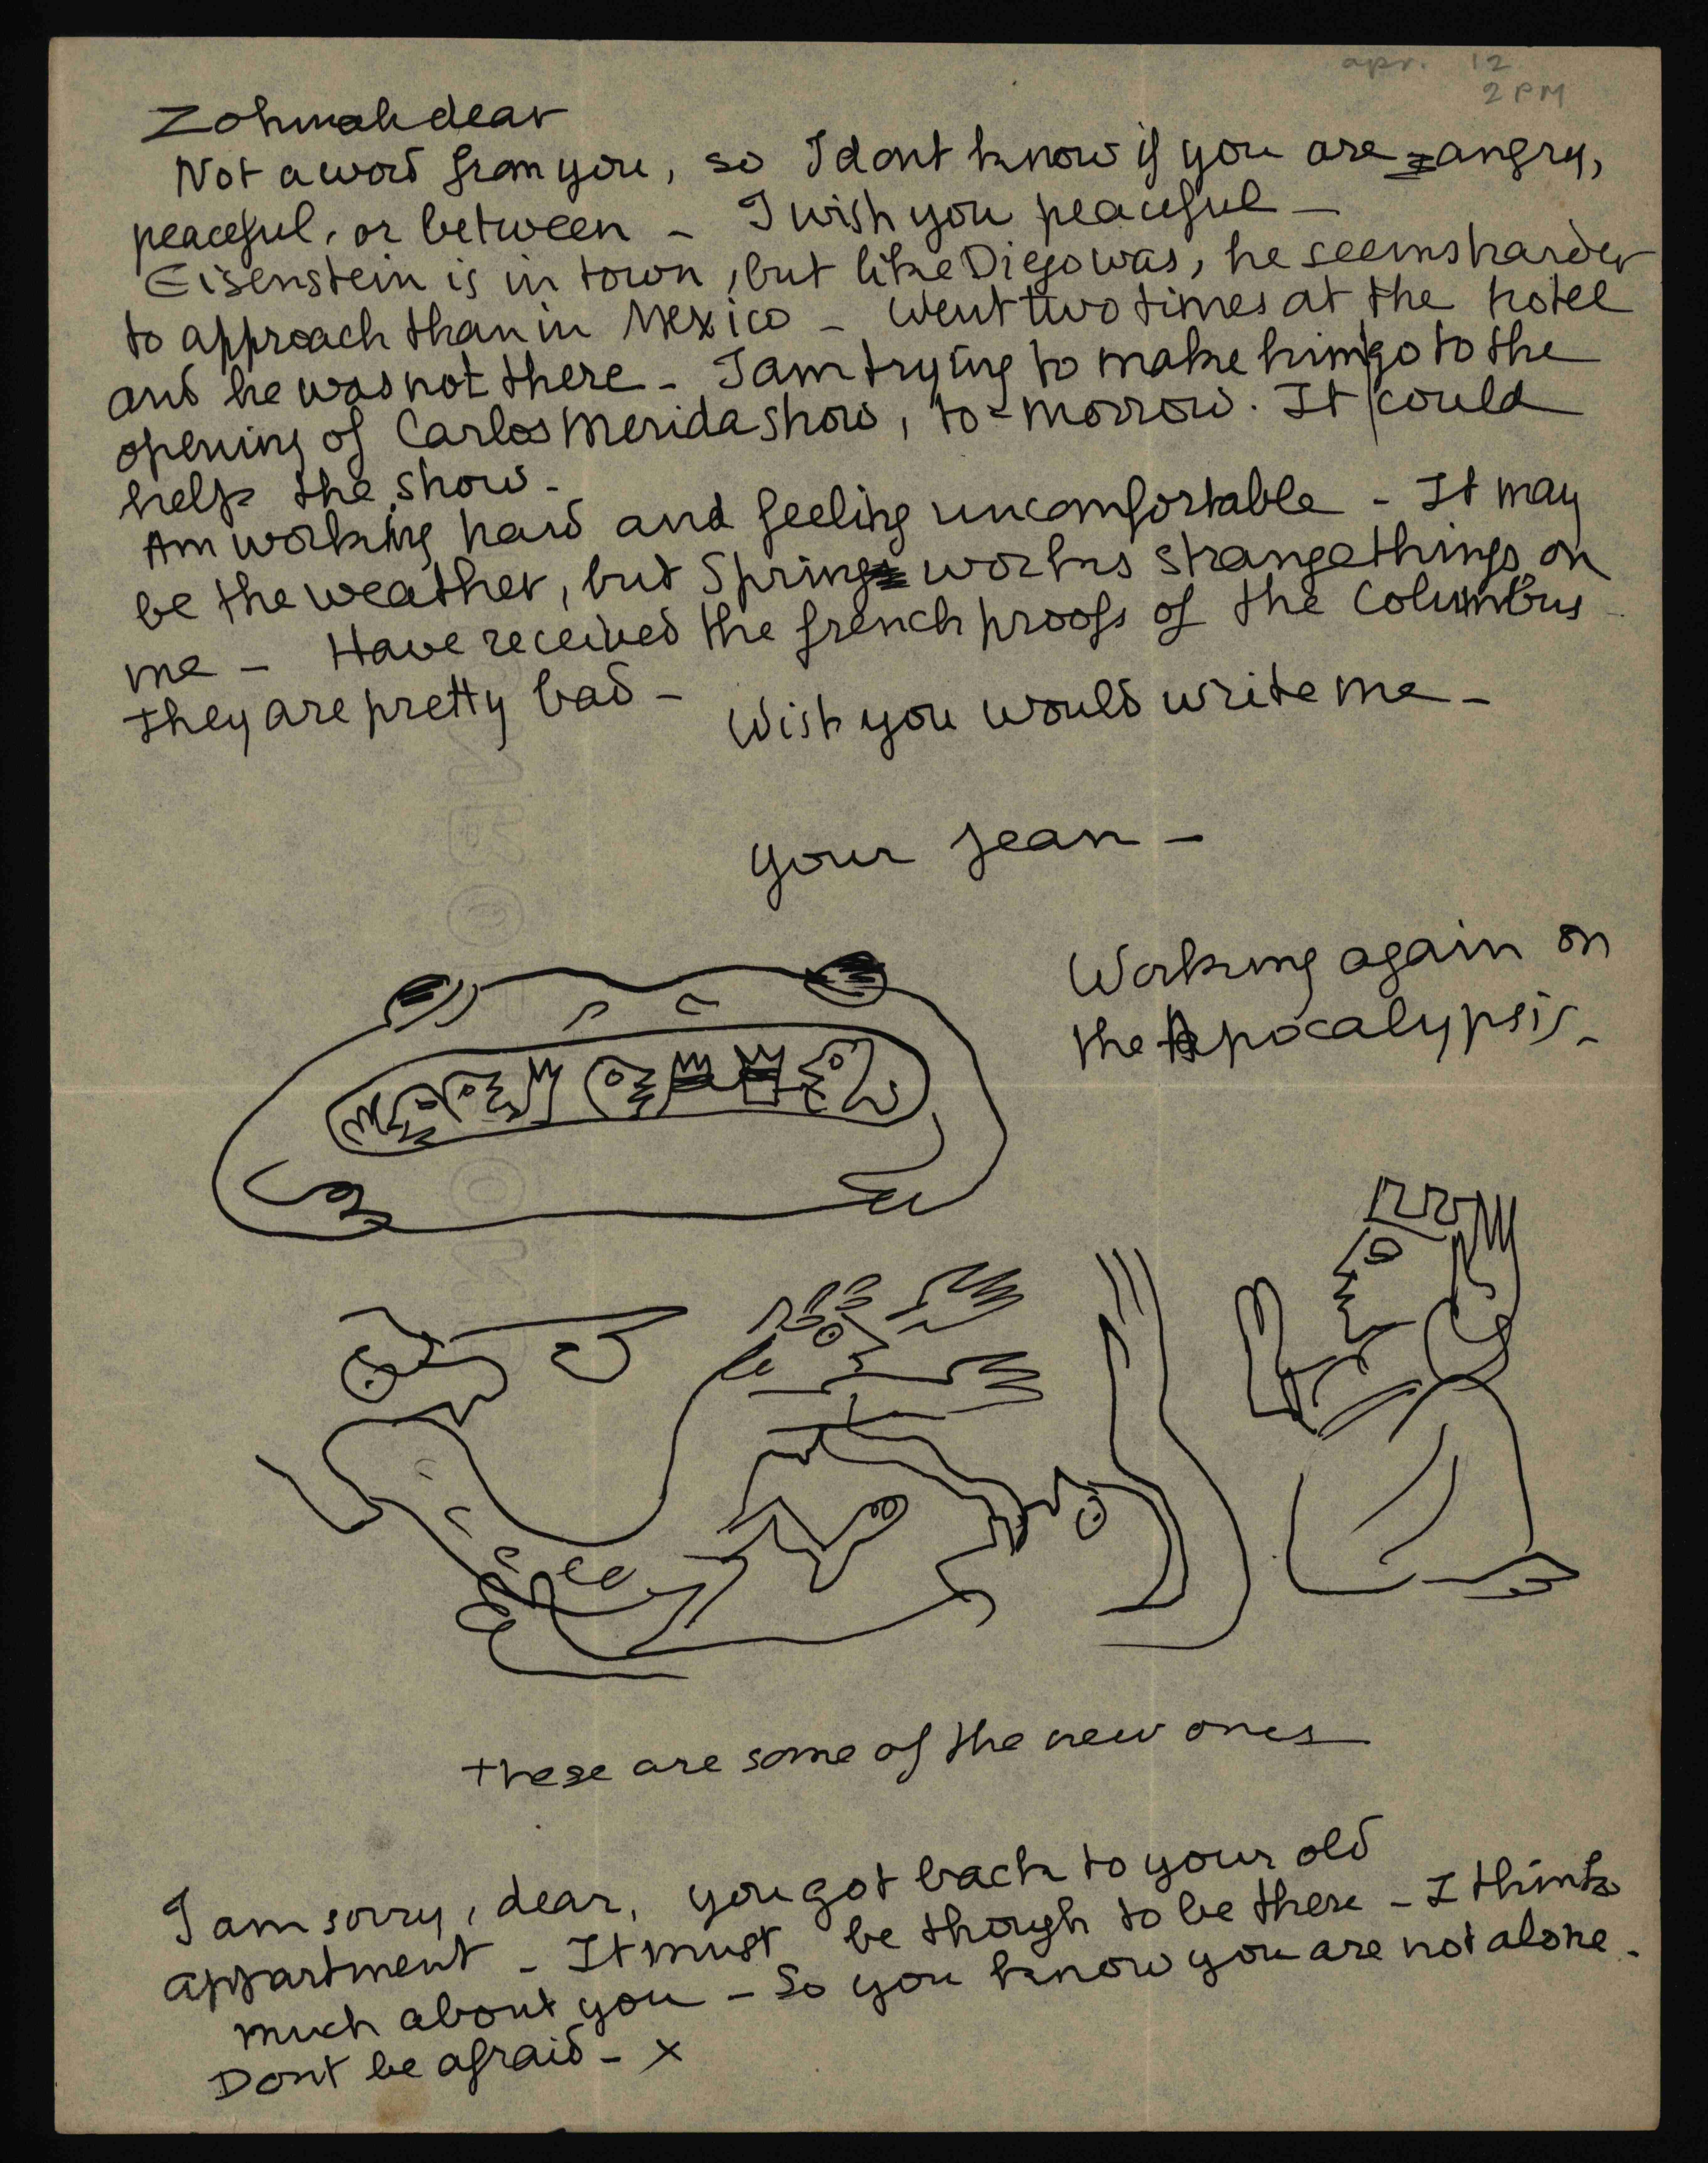 apr. 12
2 PM
Zohmah dear
Not a word from you, so I dont know if you are angry,
peaceful, or between - I wish you peaceful -
Eisenstein is in town, but like Diego was, he seems harder
to approach than in Mexico - Went two times at the hotel
and he was not there - I am trying to make him go to the
opening of Carlos Merida show, to-morrow. It could
help the show -
Am working hard and feeling uncomfortable - It may
be the weather, but Spring works strange things on
me - Have received the french proofs of the Columbus
they are pretty bad - Wish you would write me -
your Jean -
Working again on
the Apocalypsis -
these are some of the new ones
I am sorry, dear, you got back to your old
appartment - It must be though to be there - I think
much about you - So you know you are not alone -
Dont be afraid - x